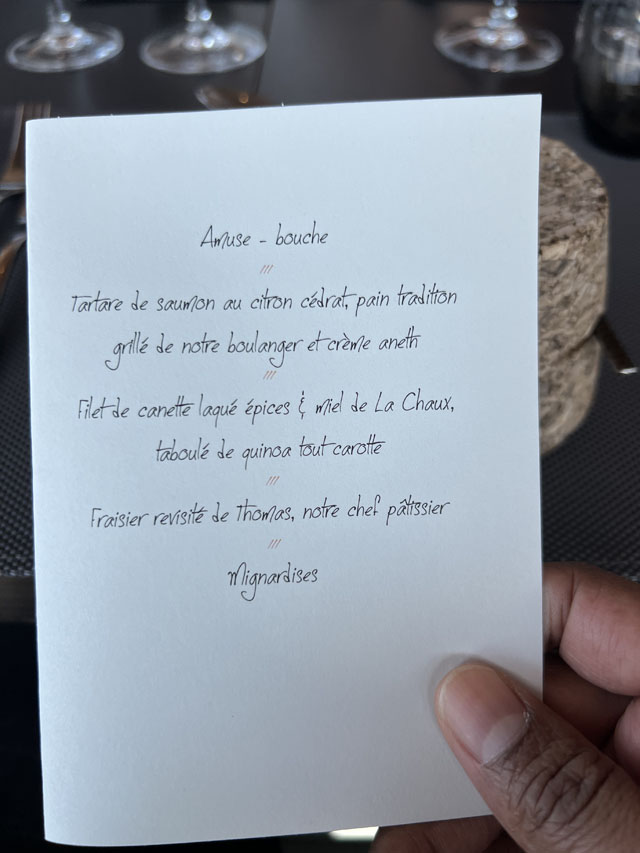 Amuse - bouche
///
Tartare de saumon au citron cédrat, pain tradition
grillé de notre boulanger et crème aneth
///
Filet de canette laqué épices & miel de La Chaux,
taboulé de quinoa tout carotte
///
Fraisier revisité de Thomas, notre chef pâtissier
///
Mignardises